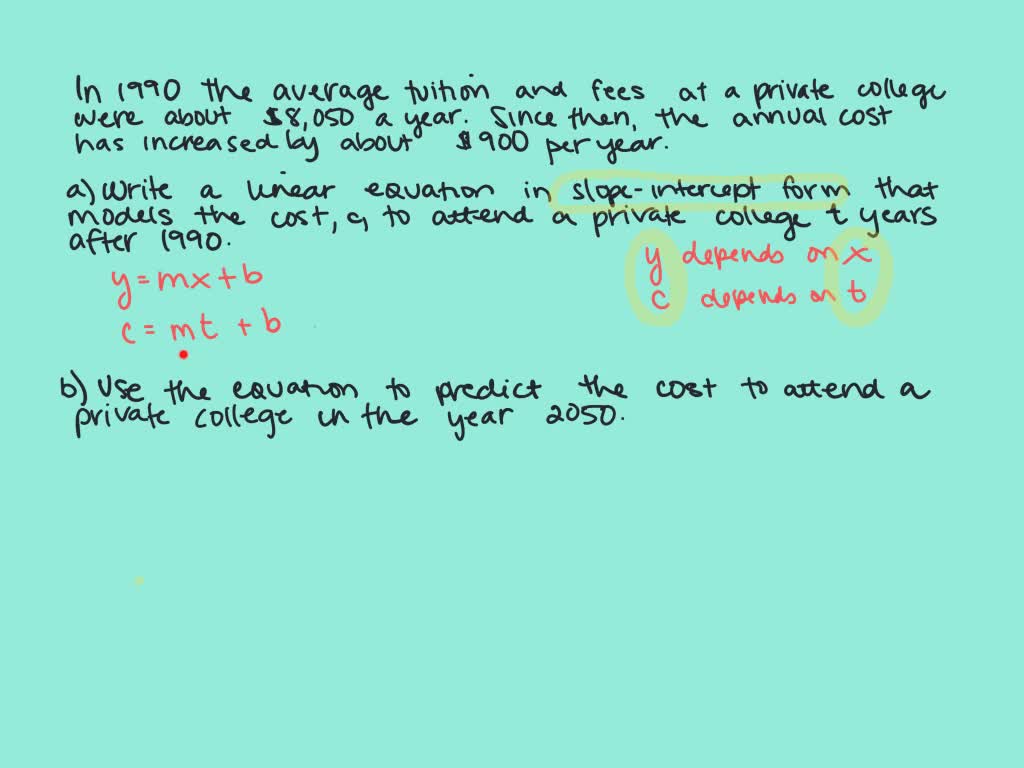 In 1990 the average tuition and fees at a private college
were about $8,050 a year. Since then, the annual cost
has increased by about $900 per year.
a) Write a linear equation in slope-intercept form that
models the cost, c, to attend a private college t years
after 1990.
y depends on x
y = mx + b
c depends on t
c = mt + b
b) Use the equation to predict the cost to attend a
private college in the year 2050.